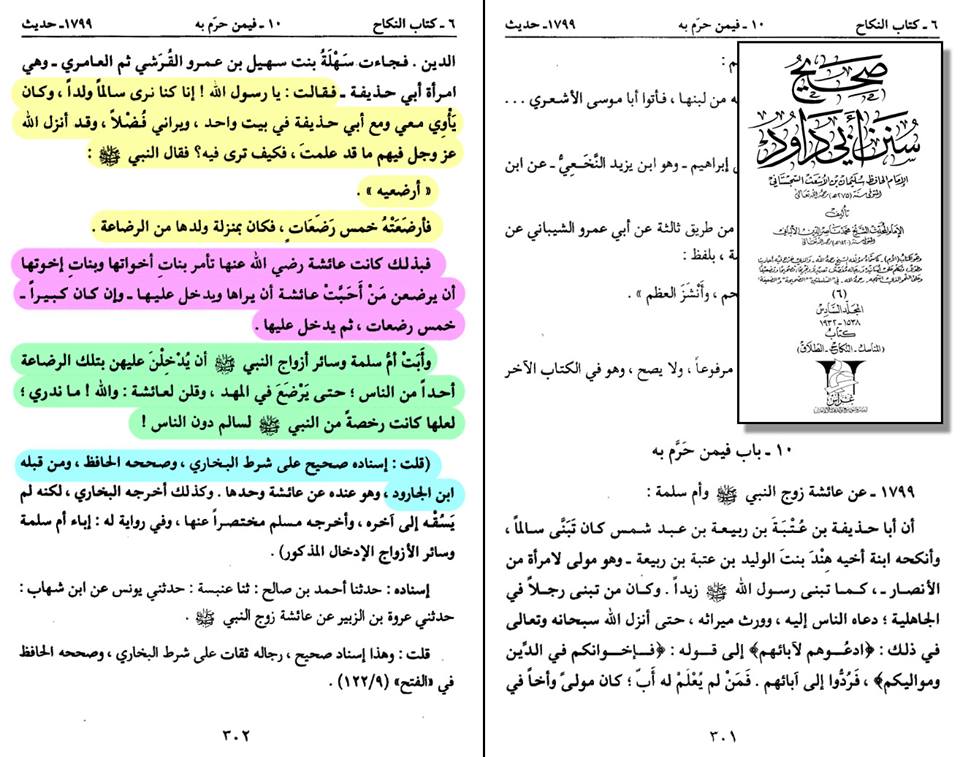 ٦ ـ كتاب النكاح ١٠ ـ فيمن حرّم به ١٧٩٩ـ حديث
م :
ه من لبنها ، فأتوا أبا موسى الأشعري ...
ى إبراهيم ـ وهو ابن يزيد النَّخَعِيُّ ـ عن ابن
من طريق ثالثة عن أبي عمرو الشيباني عن
ة ، بلفظ :
حم ، وأَنْشَزَ العظم » .
مرفوعاً ، ولا يصح ، وهو في الكتاب الآخر
صحيح
سنن أبي داود
الإمام الحافظ سليمان بن الأشعث السجستاني
المتوفى سنة (٢٧٥هـ) رحمه الله تعالى
تأليف
الإمام المحدث الشيخ محمد ناصر الدين الألباني
(٦)
المجلد السادس
١٥٣٨ - ١٩٣٢
كتاب
(المناسك ـ النكاح ـ الطلاق)
غراس
١٠ ـ باب فيمن حَرَّم به
١٧٩٩ ـ عن عائشة زوج النبي ﷺ وأم سلمة :
أن أبا حذيفة بن عُتْبَةَ بن ربيعة بن عبد شمس كان تَبَنَّى سالماً ،
وأنكحه ابنة أخيه هِنْدَ بنتَ الوليد بن عتبة بن ربيعة ـ وهو مولى لامرأة من
الأنصار ـ، كما تبنى رسول الله ﷺ زيداً . وكان من تبنى رجلاً في
الجاهلية ؛ دعاه الناس إليه ، وورث ميراثه ، حتى أنزل الله سبحانه وتعالى
في ذلك : ﴿ادعُوهم لآبائهم﴾ إلى قوله : ﴿فإخوانكم في الدِّين
ومواليكم﴾ ، فَرُدُّوا إلى آبائهم . فَمَنْ لم يُعْلَمْ له أبٌ ؛ كان مولىً وأخاً في
٣٠١
٦ ـ كتاب النكاح ١٠ ـ فيمن حرّم به ١٧٩٩ـ حديث
الدين . فجاءت سَهْلَةُ بنت سهيل بن عمرو القُرَشي ثم العامري ـ وهي
امرأة أبي حذيفة ـ فقالت : يا رسول الله ! إنا كنا نرى سالماً ولداً ، وكان
يَأْوِي معي ومع أبي حذيفة في بيت واحد ، ويراني فُضْلاً ، وقد أنزل الله
عز وجل فيهم ما قد علمتَ ، فكيف ترى فيه؟ فقال النبي ﷺ :
« أرضعيه » .
فأرضَعَتْهُ خمس رَضَعَاتٍ ، فكان بمنزلة ولدها من الرضاعة .
فبذلك كانت عائشة رضي الله عنها تأمر بناتِ أخواتها وبناتِ إخوتها
أن يرضعن مَنْ أَحَبَّتْ عائشة أن يراها ويدخل عليها ـ وإن كان كبيراً ـ
خمس رضعات ، ثم يدخل عليها .
وأَبَتْ أمُّ سلمة وسائر أزواج النبي ﷺ أن يُدْخِلْنَ عليهن بتلك الرضاعة
أحداً من الناس ؛ حتى يَرْضَعَ في المهد ، وقلن لعائشة : والله ! ما ندري ؛
لعلها كانت رخصةً من النبي ﷺ لسالم دون الناس !
(قلت : إسناده صحيح على شرط البخاري ، وصححه الحافظ ، ومن قبله
ابن الجارود ، وهو عنده عن عائشة وحدها . وكذلك أخرجه البخاري ، لكنه لم
يَسُقْه إلى آخره ، وأخرجه مسلم مختصراً عنها ، وفي رواية له : إباء أم سلمة
وسائر الأزواج الإدخال المذكور) .
إسناده : حدثنا أحمد بن صالح : ثنا عنبسة : حدثني يونس عن ابن شهاب :
حدثني عروة بن الزبير عن عائشة زوج النبي ﷺ .
قلت : وهذا إسناد صحيح ، رجاله ثقات على شرط البخاري ، وصححه الحافظ
في «الفتح» (١٢٢/٩) .
٣٠٢